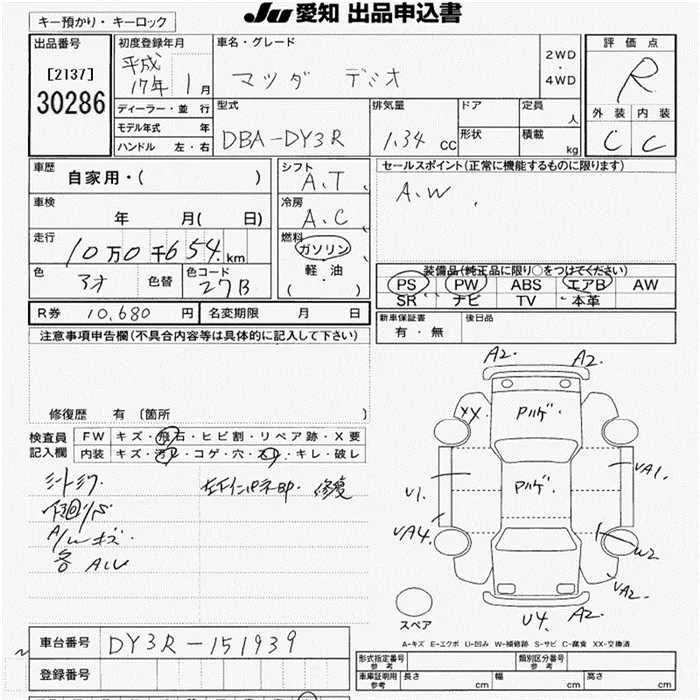 キー預かり・キーロック
JU 愛知 出品申込書
出品番号
[2137]
30286
初度登録年月
平成
17年 1月
車名・グレード
マツダ デミオ
2WD
・
4WD
評価点
R
外装 内装
C C
ディーラー・並行
モデル年式 年
ハンドル 左・右
型式
DBA-DY3R
排気量
1.34 CC
ドア
形状
定員 人
積載 kg
車歴
自家用・( )
シフト
A.T
セールスポイント(正常に機能するものに限ります)
A.W
車検
年 月( 日)
冷房
A.C
走行
10万0千654km
燃料
ガソリン
軽・油
( ・ )
色
アオ
色替
色コード
27B
装備品(純正品に限り○をつけてください)
PS PW ABS エアB AW
SR ナビ TV 本革
R券 10,680 円
名変期限 月 日
新車保証書
有・無
後日品
注意事項申告欄(不具合内容等は具体的に記入して下さい)
修復歴 有 (箇所 )
検査員
記入欄
FW キズ・飛石・ヒビ割・リペア跡・X要
内装 キズ・汚れ・コゲ・穴・スレ・キレ・破レ
シートシワ
下廻りS
A/Wキズ
各 AU
修復
A2. A2.
XX
Pルゲ.
Pルゲ.
U1.
VA1.
VA4.
W2
VA2.
U4. A2.
スペア
A-キズ E-エクボ U-凹み W-補修跡 S-サビ C-腐食 XX-交換済
車台番号 DY3R-151939
登録番号
形式指定番号
参考
類別区分番号
参考
車庫証明用
参考
長さ cm 幅 cm 高さ cm